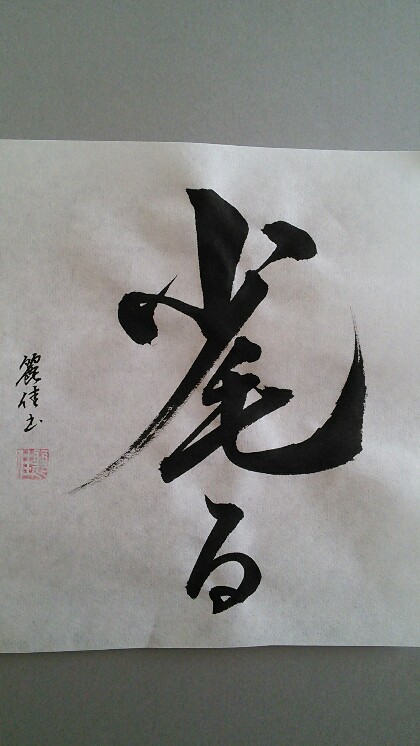 毟る
麗佳書